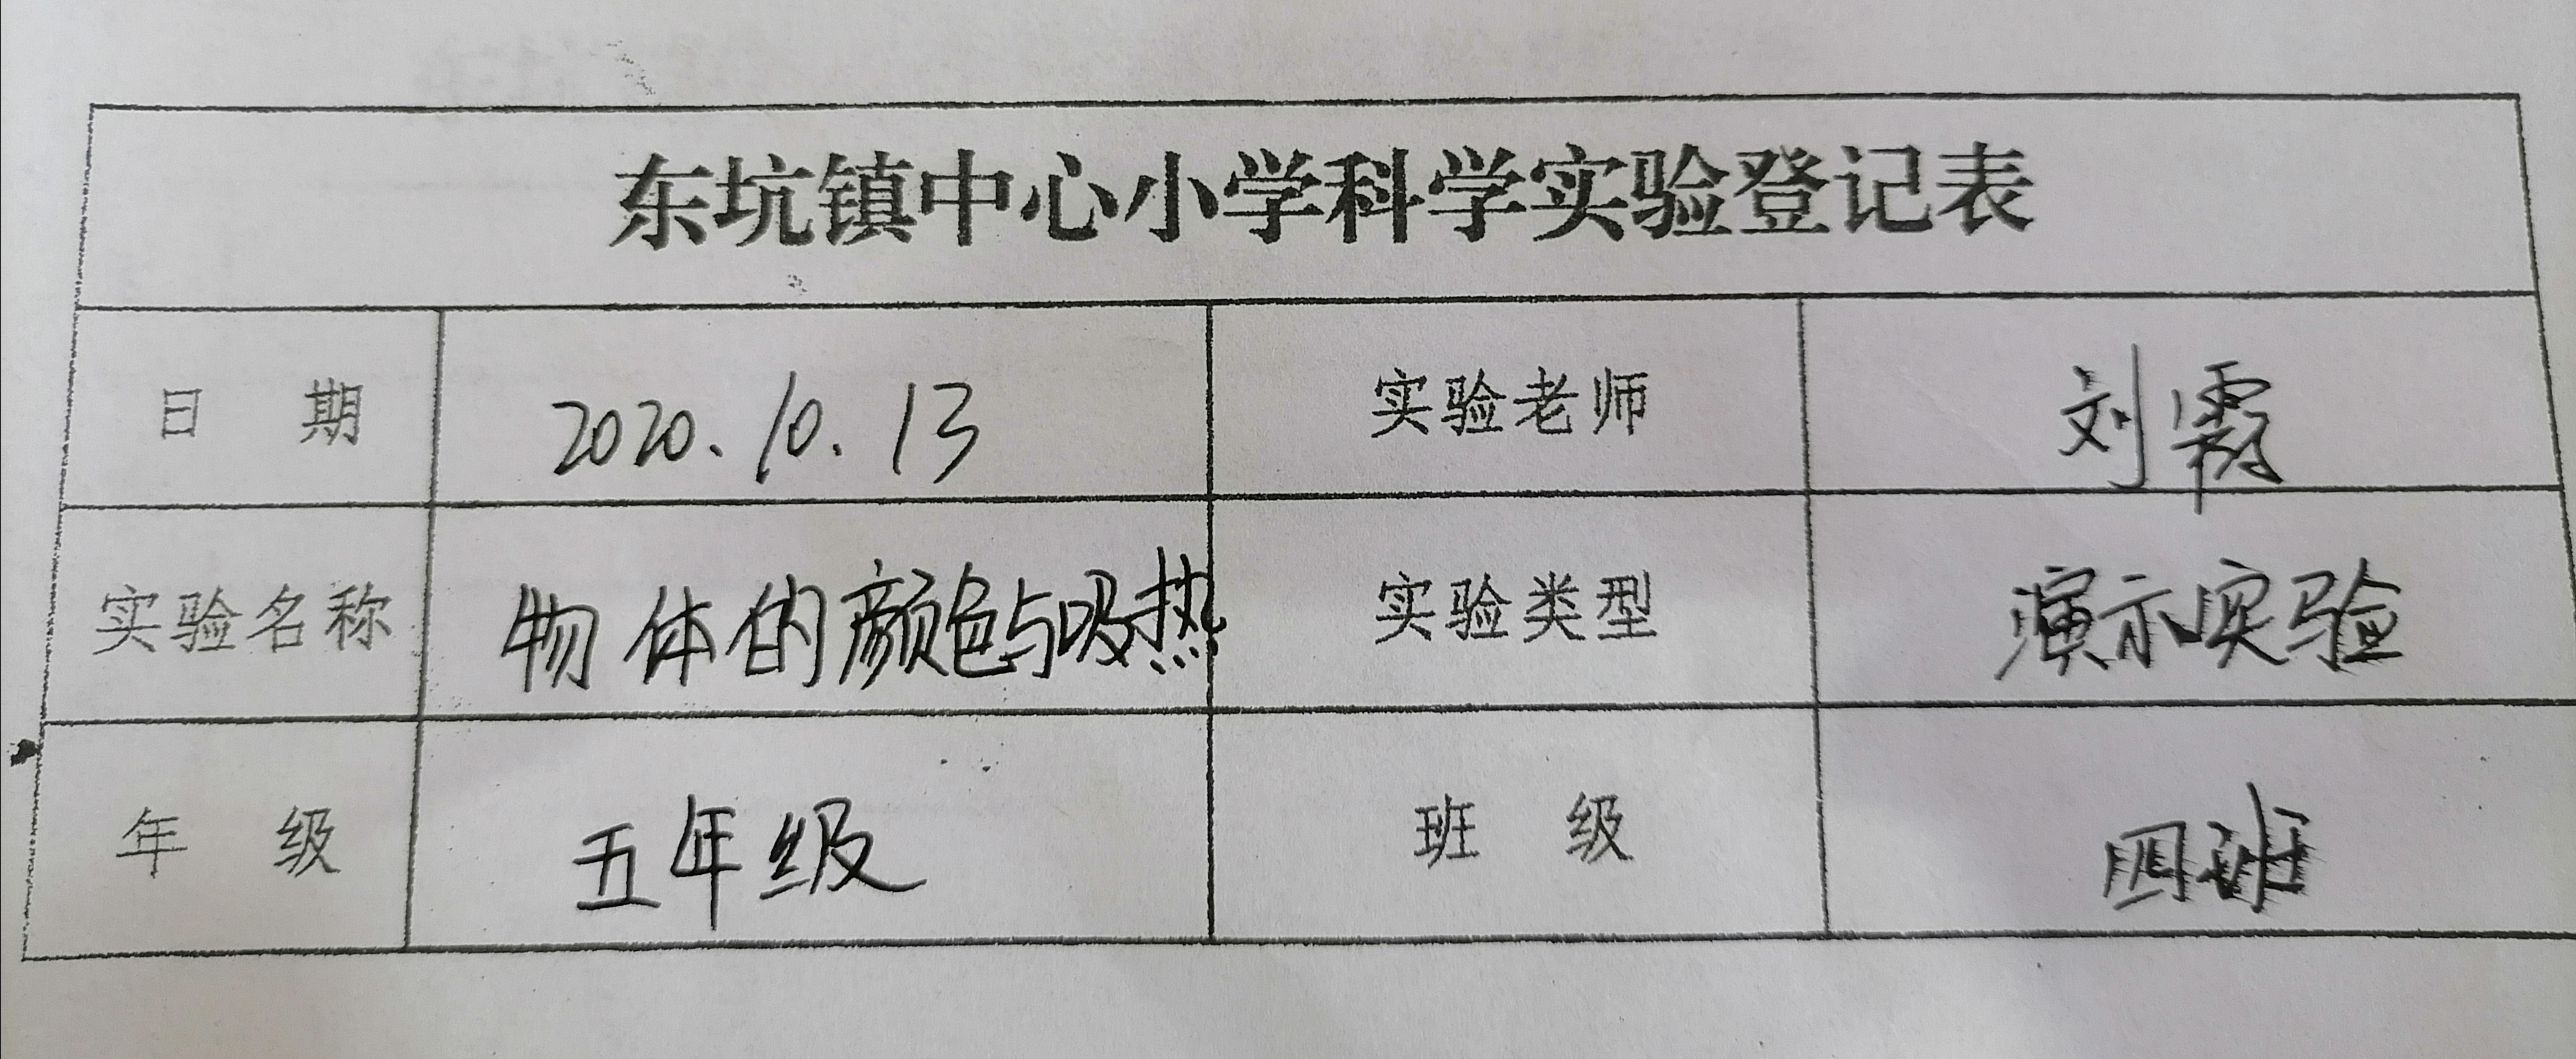 东坑镇中心小学科学实验登记表
日 期 2020.10.13 实验老师 刘霞
实验名称 物体的颜色与吸热 实验类型 演示实验
年 级 五年级 班 级 四班